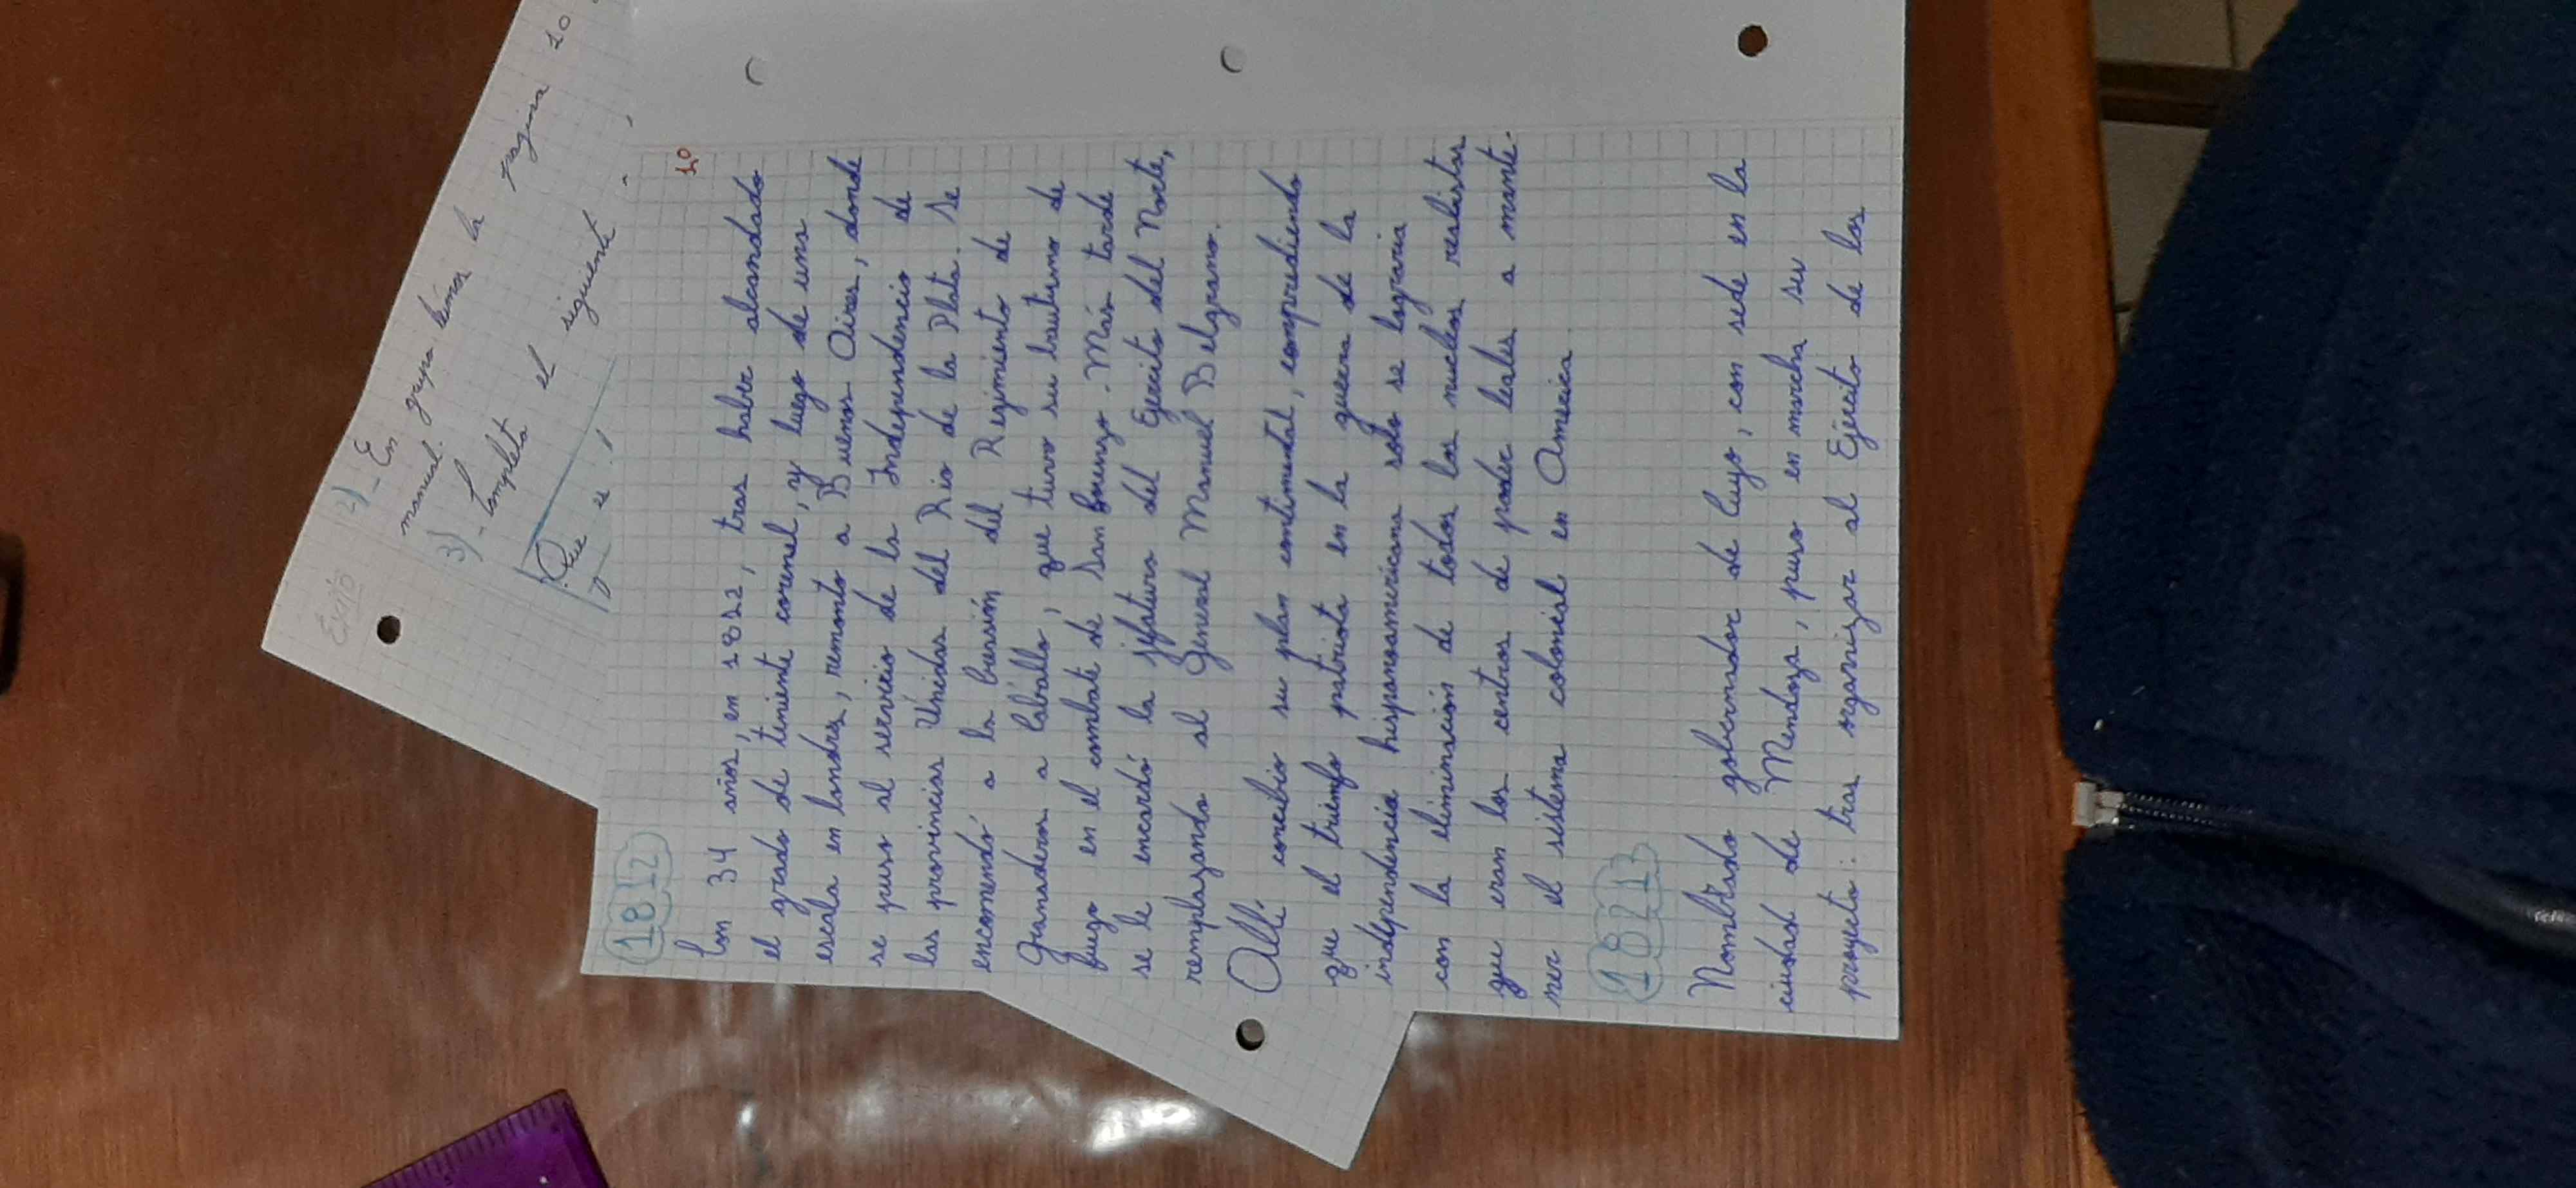 2)- En grupo leímos la pagina 10
manual.
3)- Completo el siguiente
Que se
10
1812
Con 34 años, en 1812, tras haber alcandado
el grado de teniente coronel, y luego de una
escala en londres, remonto a Buenos Aires, donde
se puso al servicio de la Independencia de
las provincias Unidas del Rio de la Plata. Se
encomendó a la creasión del Regimiento de
Granaderos a Caballo, que tuvo su bautismo de
fuego en el combate de San Lorenzo. Más tarde
se le encardó la jefatura del Ejercito del Norte,
remplazando al General Manuel Belgrano.
Allí concibio su plan continental, comprediendo
que el triunfo patriota en la guerra de la
independencia hispanoamericana solo se lograria
con la eliminación de todos los nucleos realistas
que eran los centros de poder leales a mante-
ner el sistema colonial en America.
Nombrado gobernador de Cuyo, con sede en la
ciudad de Mendoza, puso en marcha su
proyecto: tras organizar al Ejército de los